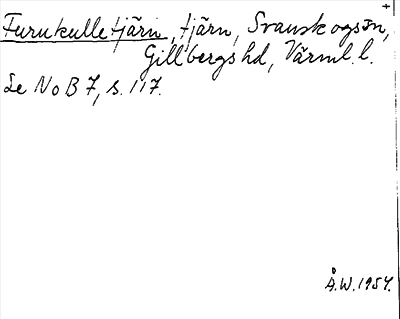 +
Furukulletjärn, tjärn, Svanskogs sn,
Gillbergs hd, Värml. l.
Se NoB 7, s. 117.
Å.W. 1954.